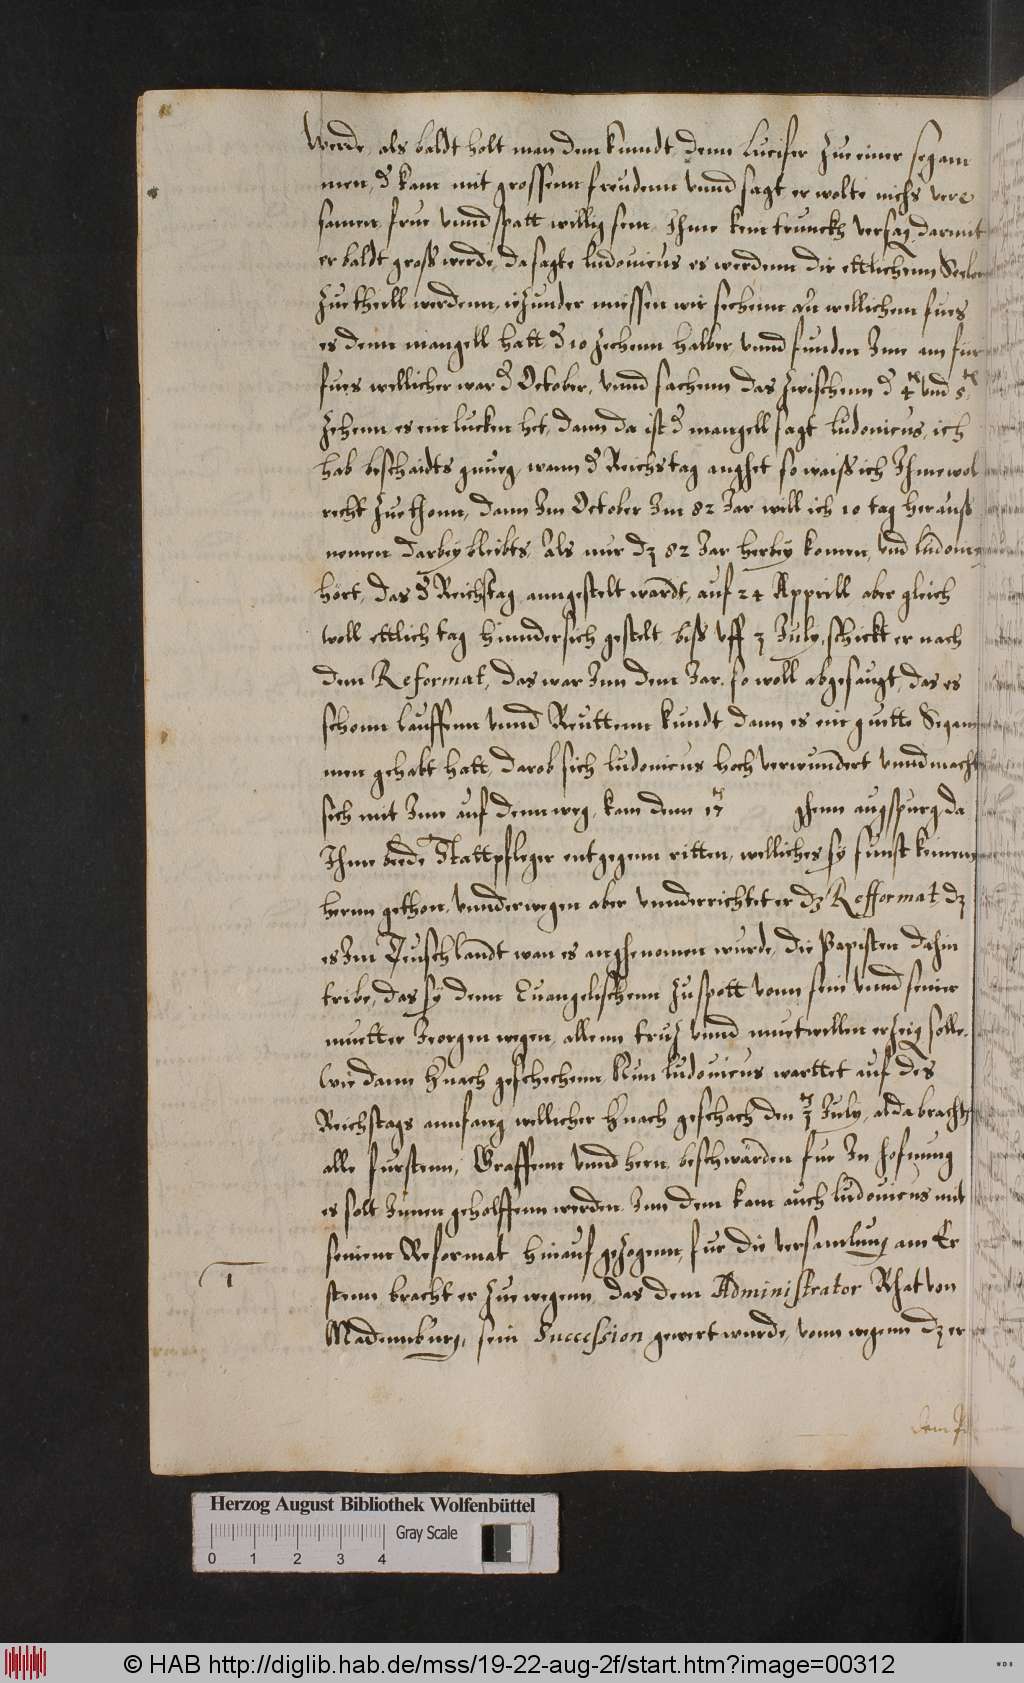 werde, als baldt holt man dem kunndt, denn Lucifer zue einer segam
men, d kam mit grossenn freudenn vnnd sagt er wolte nichs ver
samen frue vnnd spatt willig sein, Ihme kein trunckh versag, darmit
er baldt groß werde, da sagte Ludouicus es werdenn dir ettlichenn Seelen
zue theill werdenn, iezunder miessen wir sechenn an wellichem fues
es denn mangell hatt, d 10 zechenn halber vnnd funden Inn am für
fues wellicher war d October, vnnd sachenn das zwischenn d 4 vnd 5
zechenn es ein lucken het, dann da ist d mangell sagt Ludouicus, ich
hab beschaidts gnueg, wann d Reichstag anghet so waiß ich Ihme wol
recht zue thonn, dann Im October Im 82 Jar will ich 10 tag herauß
nemen darbey bleibts, Als nur dz 82 Jar herbey komen, vnd Ludoui
hört, das d Reichstag anngestelt wardt, auf 24 Apprill aber gleich
woll ettlich tag hinndersich gestelt, biß vff 3 July, schickt er nach
dem Reformat, das war Inn dem Jar so woll abgesaugt, das es
schonn lauffenn vnnd Reuttenn kundt, dann es ein guette Segam
men gehabt hatt, darob sich Ludouicus hoch verwundert vnnd macht
sich mit Inn auf denn weg, kam denn 17 ghenn augspurg da
Ihme beede Stattpfleger entgegenn ritten, welliches sy sunst keinem
herrn gethon, vnnderwegen aber vnnderrichtet er dz Refformat, dz
es Im Teuschlandt wan es anghenomen wurde, die Papisten dahin
tribe, das sy denn Euangelischenn zu spott vonn sein vnnd seiner
muetter Jeorgen wegen, allenn truz vnnd muetwillen erzeig solle,
wie dann hnach geschechenn, Nun Ludouicus warttet auf des
Reichstags annfang wellicher hnach geschach den 3 July, alda bracht
alle furstenn, Graffenn vnnd hern, beschwärden fur In hofnung
es solt Innen geholffenn werden, Inn dem kam auch Ludouicus mit
seinem Reformat hinauf gezogenn, fur die versamlung am Er
stenn bracht er zue wegenn, das dem Administrator Rhat von
Madennburg, sein Succession gewert wurde, vonn wegenn dz er
1
dem
Herzog August Bibliothek Wolfenbüttel
0 1 2 3 4 Gray Scale
© HAB http://diglib.hab.de/mss/19-22-aug-2f/start.htm?image=00312